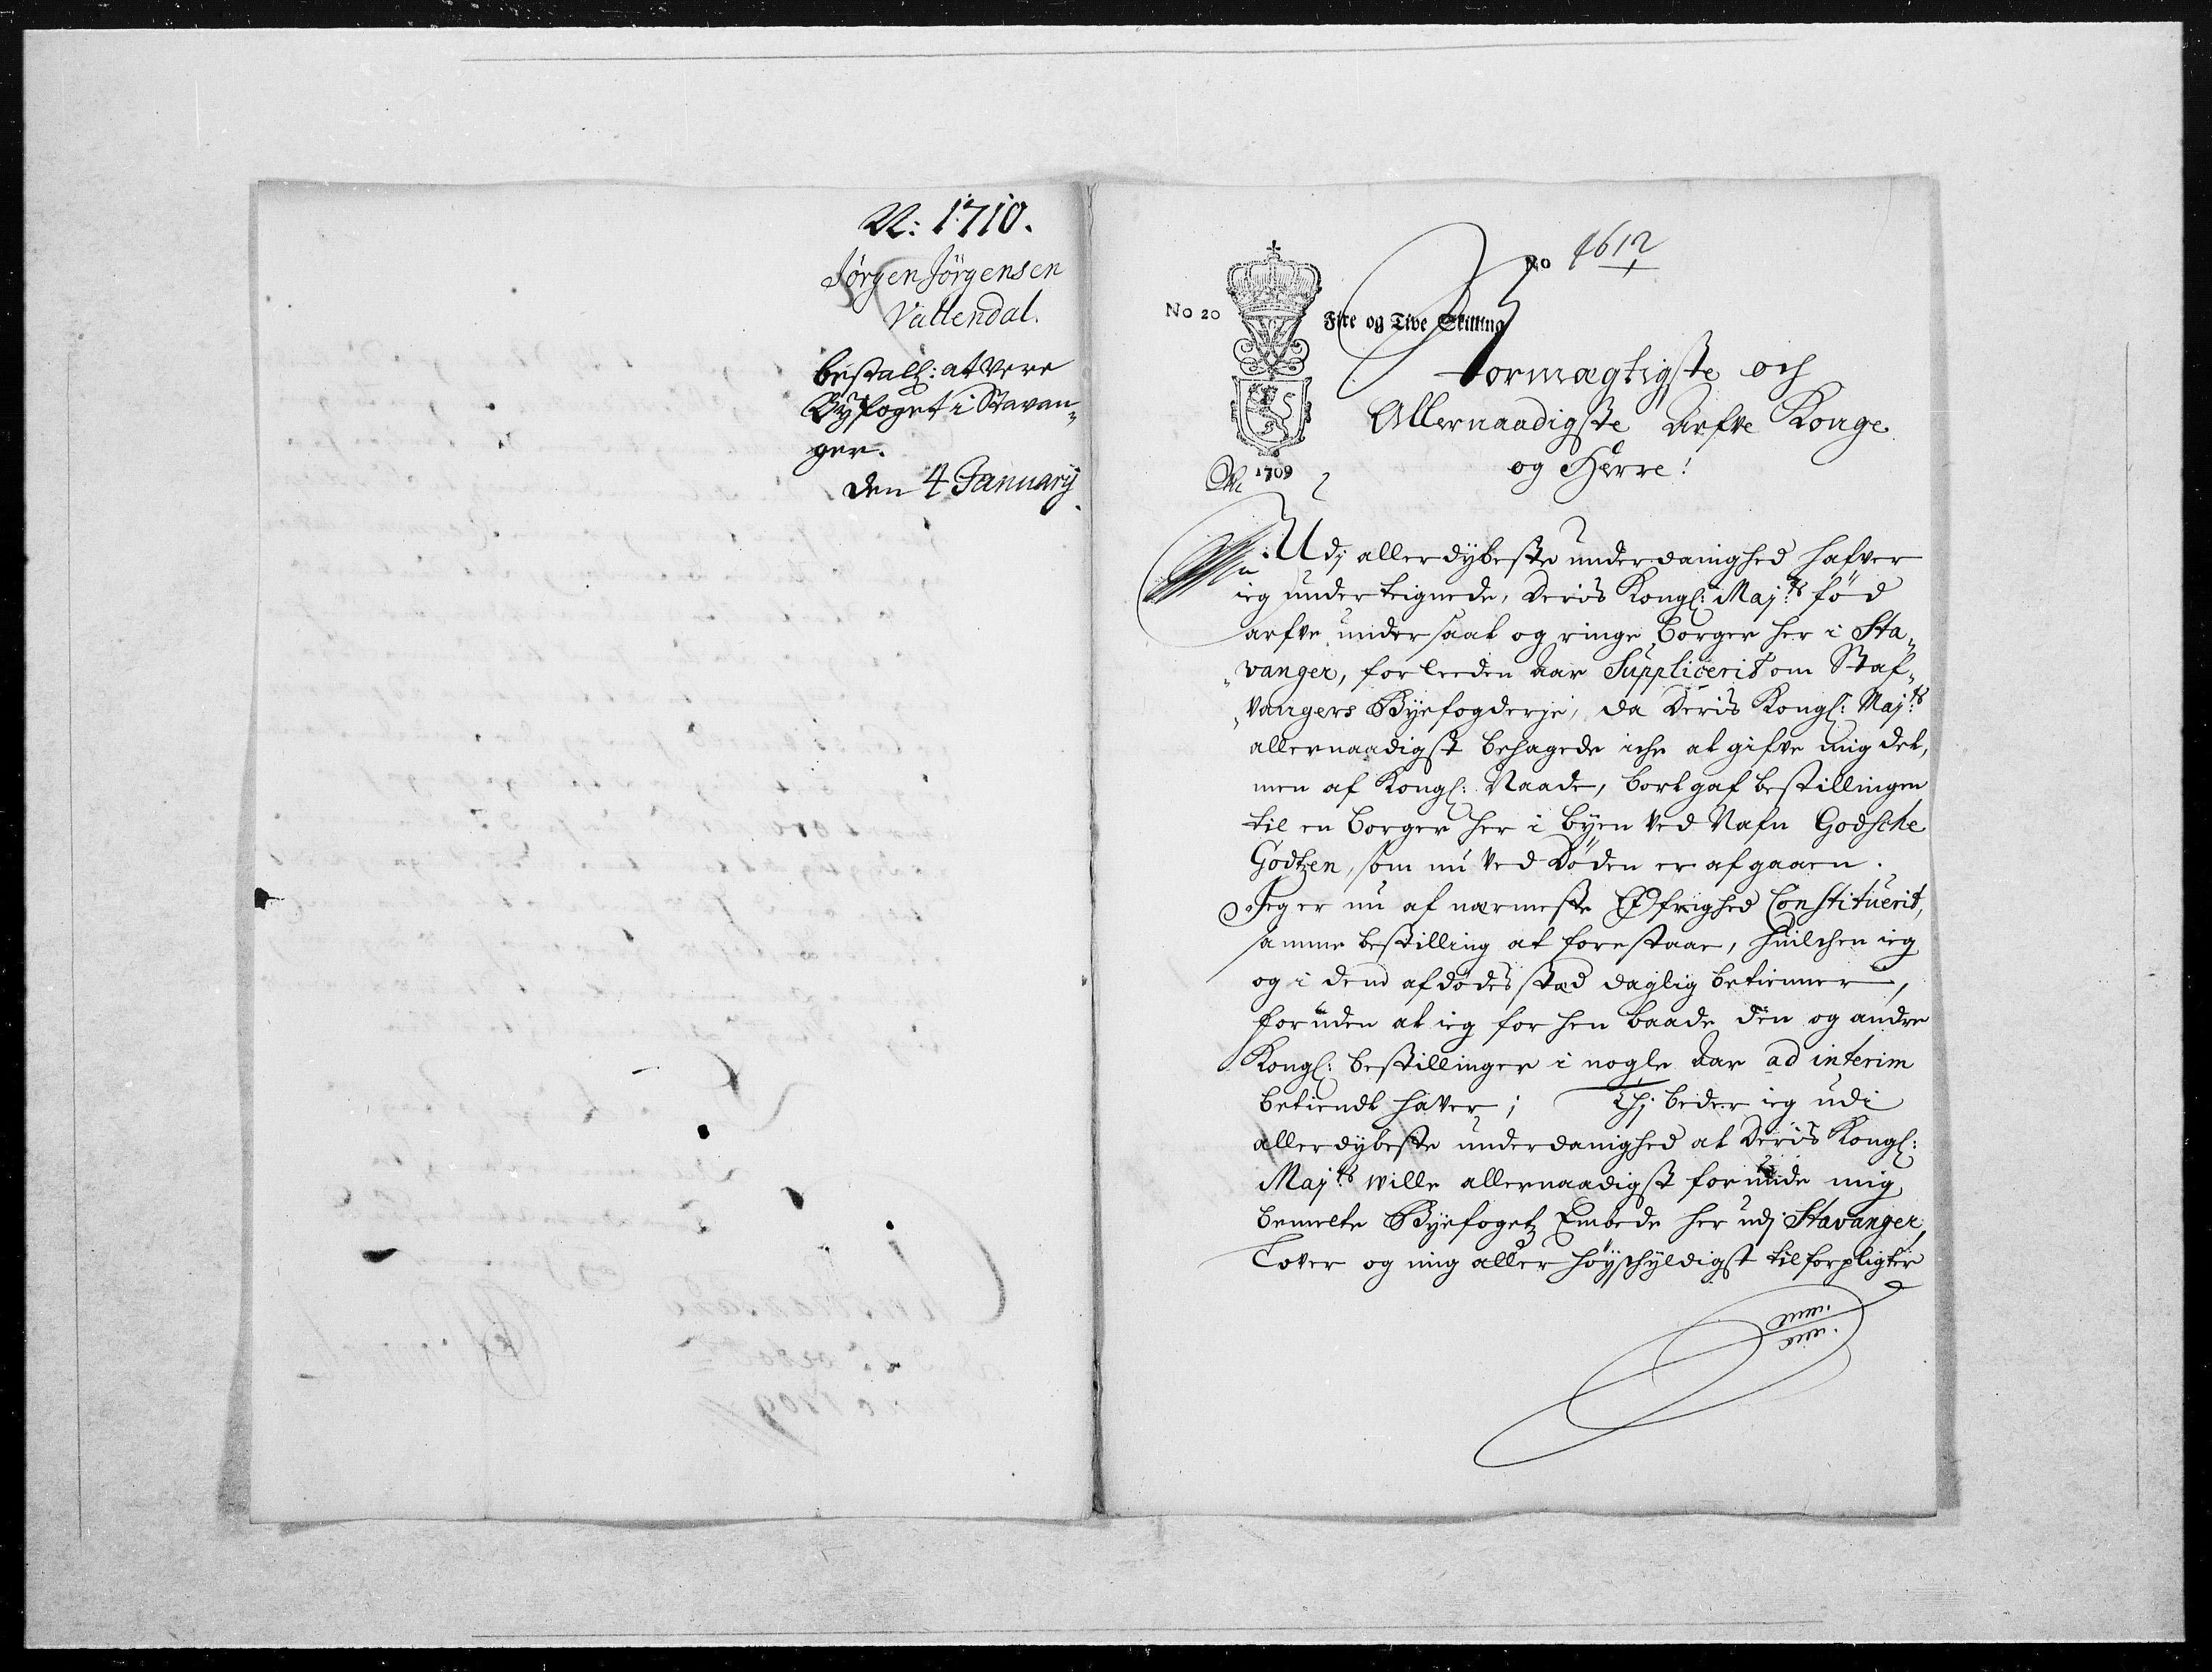 N: 1710.
Jörgen Jörgensen
Vallendal.
bestall: at være
Byfoget i Stavan-
ger.
den 4 January
No 1612
No 20
Fire og Tive Skilling
1709
Stormægtigste och
Allernaadigste Arfve Konge
og Herre!
Udj allerdybeste underdanighed hafver
ieg underteignede, Deris Kongl: Maj:ts fød
arfve undersaat og ringe borger her i Sta-
vanger, forleeden Aar Suppliceriit om Staf-
vangers Byefogderje, da Deris Kongl: Maj:ts
allernaadigst behagede iche at gifve mig det,
men af Kongl: Naade, bort gaf bestillingen
til en borger her i byen ved Nafn Godsche
Godtzen, som nu ved Døden er afgaaen.
Jeg er nu af nærmeste Øfrighed Constituerit,
samme bestilling at forestaae, huilchen ieg
og i dend afdødes stæd daglig betienner,
foruden at ieg for hen baade den og andre
Kongl: bestillinger i nogle Aar ad interim
betiendt haver; Thj beder ieg udi
allerdybeste underdanighed at Deris Kongl:
Maj:ts wille allernaadigst forunde mig
bemelte Byefogetz Embede her udj Stavanger,
Lover og mig aller høyschyldigst tilforpligter